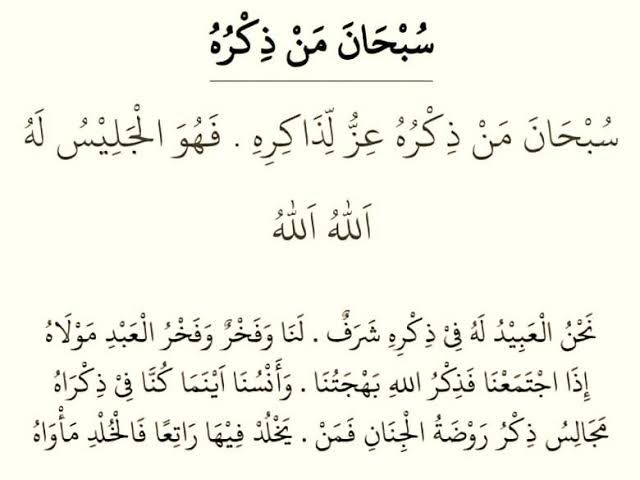 سُبْحَانَ مَنْ ذِكْرُهُ
سُبْحَانَ مَنْ ذِكْرُهُ عِزُّ لِّذَاكِرِهِ . فَهُوَ الْجَلِيْسُ لَهُ
اَللهُ اَللهُ
نَحْنُ الْعَبِيْدُ لَهُ فِيْ ذِكْرِهِ شَرَفٌ . لَنَا وَفَخْرٌ وَفَخْرُ الْعَبْدِ مَوْلَاهُ
إِذَا اجْتَمَعْنَا فَذِكْرُ اللهِ بَهْجَتُنَا . وَأَنْسُنَا اَيْنَمَا كُنَّا فِيْ ذِكْرَاهُ
مَجَالِسُ ذِكْرُ رَوْضَةُ الْجِنَانِ فَمَنْ . يَخْلُدْ فِيْهَا رَاتِعًا فَالْخُلْدِ مَأْوَاهُ